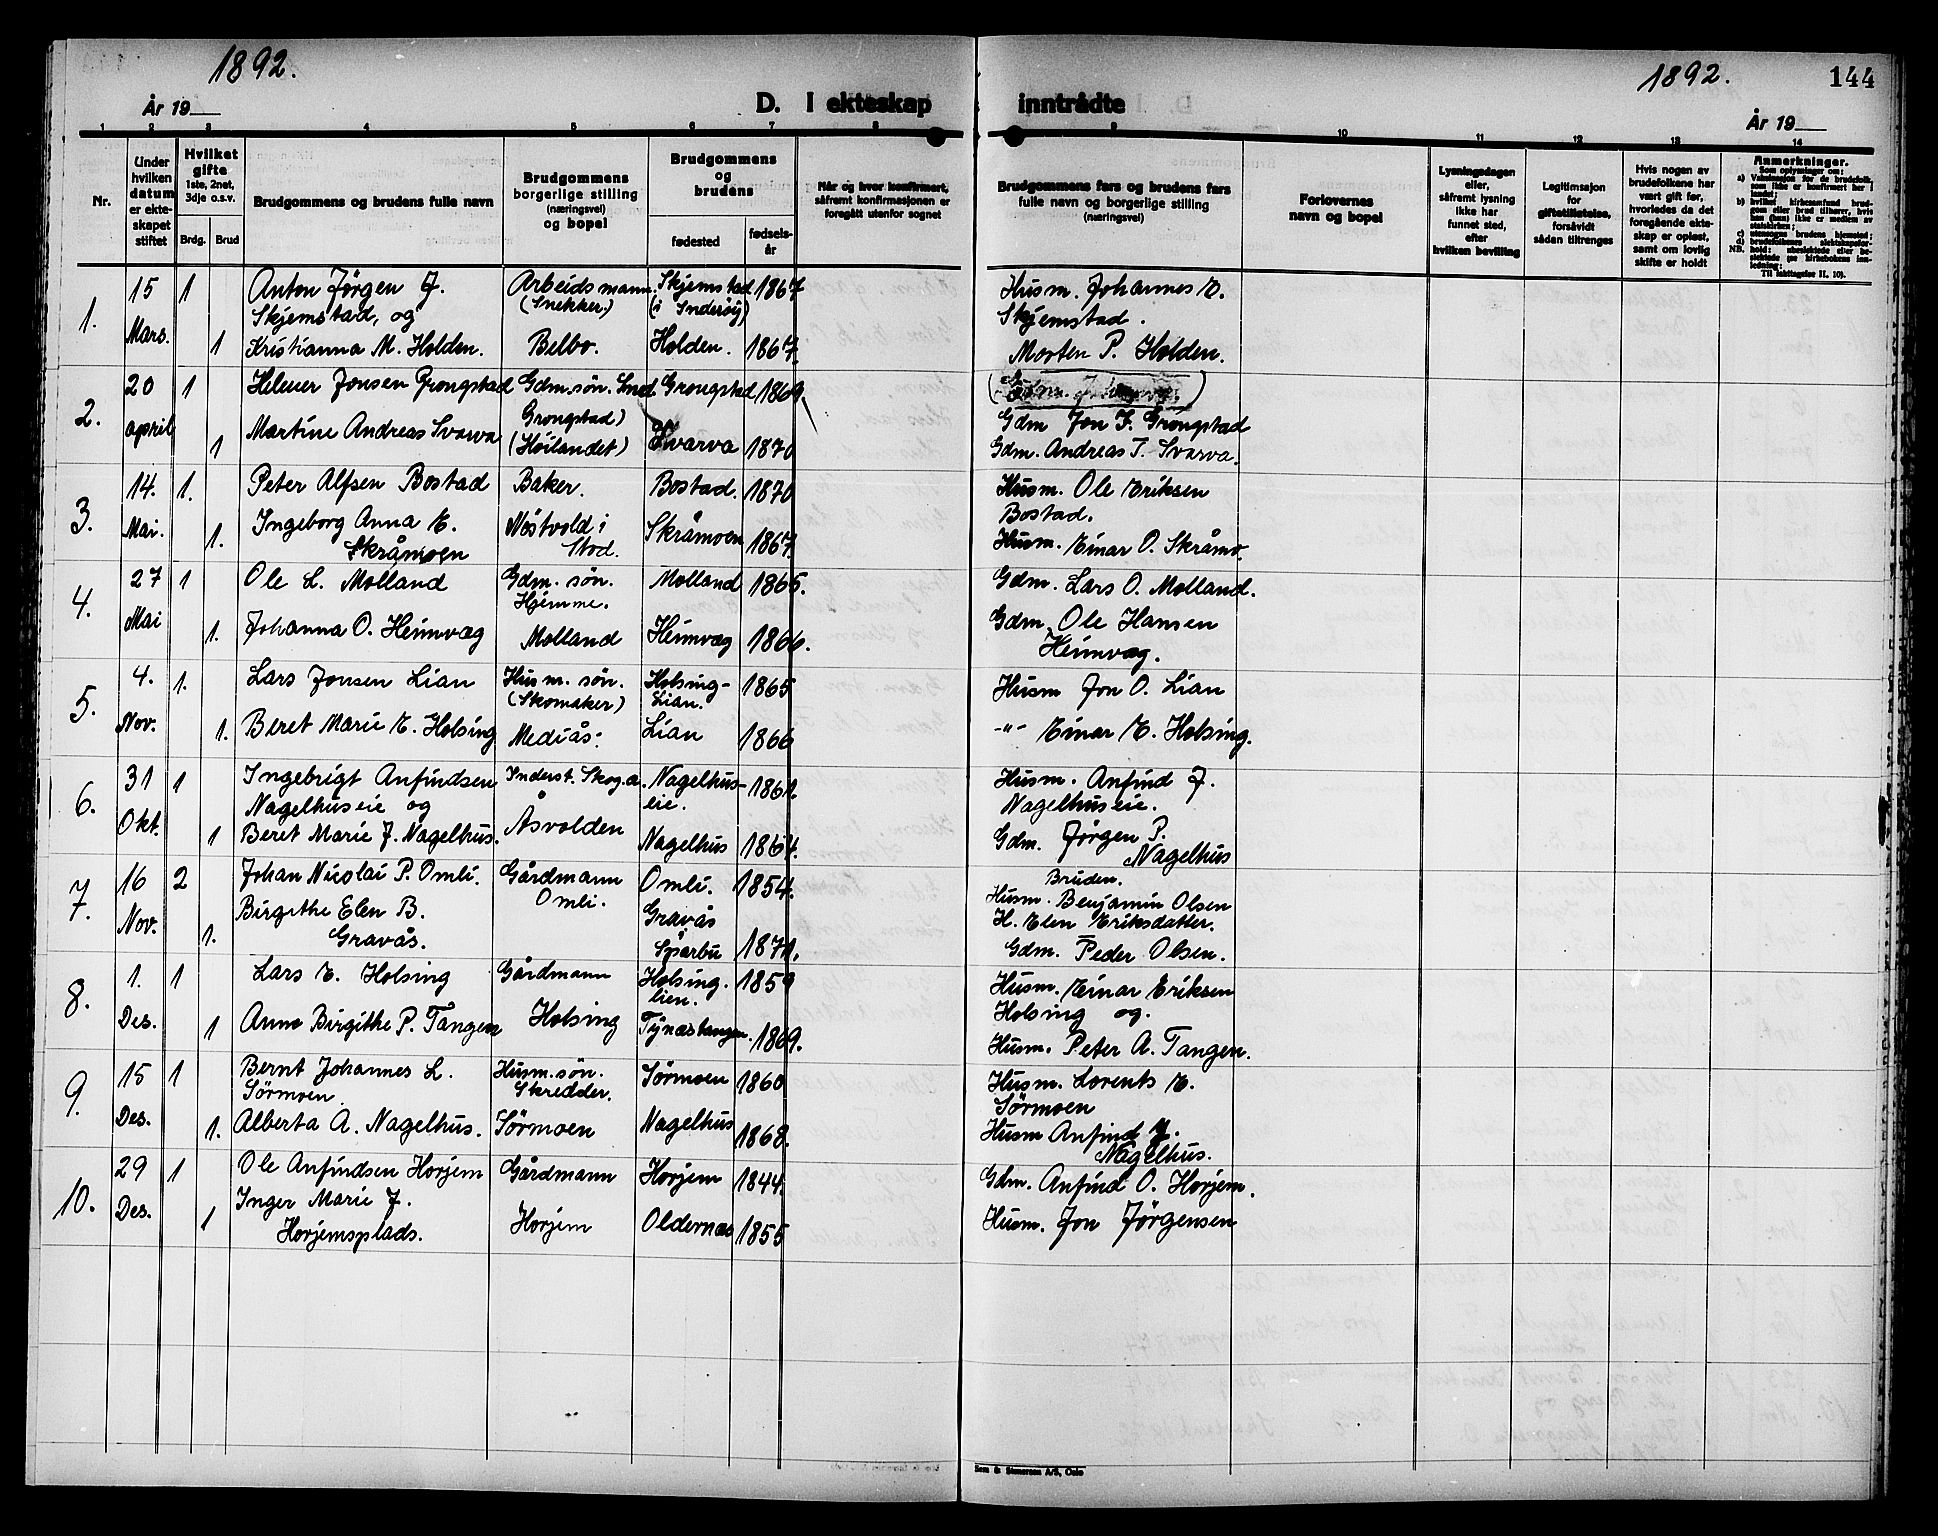 1892.
År 19
D. I ekteskap
1 2 3 4 5 6 7 8
Nr.
Under hvilken datum er ekteskapet stiftet
Hvilket gifte
1ste, 2net, 3dje o.s.v.
Brdg. Brud
Brudgommens og brudens fulle navn
Brudgommens borgerlige stilling (næringsvei) og bopel
Brudgommens og brudens
fødested
fødselsår
Når og hvor konfirmert, såfremt konfirmasjonen er foregått utenfor sognet
1. 15 Mars. 1 1
Anton Jørgen J.
Skjemstad, og
Kristianna M. Holden.
Arbeidsmann.
(Snekker.)
Belbo.
Skjemstad 1867
(i Inderøy)
Holden. 1867.
2. 20 april 1 1
Helmer Jonsen Grongstad
Martine Andreas Svarva
Gdm. søn. Smed
Grongstad)
(Høilandet)
Grongstad 1869.
Svarva 1870
3. 14. Mai. 1. 1.
Peter Alfsen Bostad
Ingeborg Anna E.
Skråmoen
Baker.
Nøstvold i
Stod.
Bostad. 1870
Skråmoen 1867.
4. 27 Mai 1 1.
Ole L. Molland
Johanna O. Heimvæg
Gdm. søn.
Hjemme.
Molland
Molland 1865.
Heimvæg 1866.
5. 4. Nov. 1. 1.
Lars Jonsen Lian
Beret Marie E. Holsing
Husm. søn.
(Skomaker)
Mediås.
Holsing-
Lian. 1865
Lian 1866
6. 31 Okt. 1 1
Ingebrigt Anfindsen
Nagelhuseie og
Beret Marie J. Nagelhus.
Inderst. Skog.a.
Åsvolden
Nagelhus-
eie. 1861.
Nagelhus 1864.
7. 16 Nov. 2 1.
Johan Nicolai P. Omli.
Birgithe Elen B.
Gravås.
Gårdmann
Omli.
Omli. 1854.
Gravås
Sparbu 1871.
8. 1. Des. 1 1
Lars E. Holsing
Anne Birgithe P. Tangen
Gårdmann
Holsing
Holsing.
lien. 1859
Tynæstangen. 1869.
9. 15 Des. 1 1.
Bernt Johannes L.
Sørmoen
Alberta A. Nagelhus.
Husm. søn.
Skredder.
Sørmoen
Sørmoen 1860
Nagelhus 1868.
10. 29 Des. 1 1
Ole Anfindsen Horjem
Inger Marie J.
Horjemsplads.
Gårdmann
Horjem
Horjem 1844.
Oldernæs 1855
1892. 144
inntrådte
År 19
9 10 11 12 13 14
Brudgommens fars og brudens fars fulle navn og borgerlige stilling (næringsvei)
Forlovernes navn og bopel
Lysningsdagen eller, såfremt lysning ikke har funnet sted, efter hvilken bevilling
Legitimasjon for giftetillatelse, forsåvidt sådan tiltrenges
Hvis nogen av brudefolkene har vært gift før, hvorledes da det foregående ekteskap er opløst, samt om lovlig skifte er holdt
Anmerkninger.
Som oplysninger om:
Husm. Johannes E.
Skjemstad.
Morten P. Holden.
Gdm Jon F. Grongstad
Gdm. Andreas T. Svarva.
Husm. Ole Eriksen
Bostad.
Husm. Einar O. Skråmo.
Gdm. Lars O. Molland.
Gdm. Ole Hansen
Heimvæg.
Husm Jon O. Lian
-"- Einar E. Holsing.
Husm. Anfind J.
Nagelhuseie.
Gdm. Jørgen P.
Nagelhus
Bruden.
Husm. Benjamin Olsen
H. Elen Eriksdatter.
Gdm. Peder Olsen.
Husm. Einar Eriksen
Holsing og.
Husm. Peter A. Tangen.
Husm. Lorents E.
Sørmoen
Husm Anfind J.
Nagelhus.
Gdm. Anfind O. Horjem.
Husm. Jon Jørgensen
Sem & Stenersen A/S, Oslo